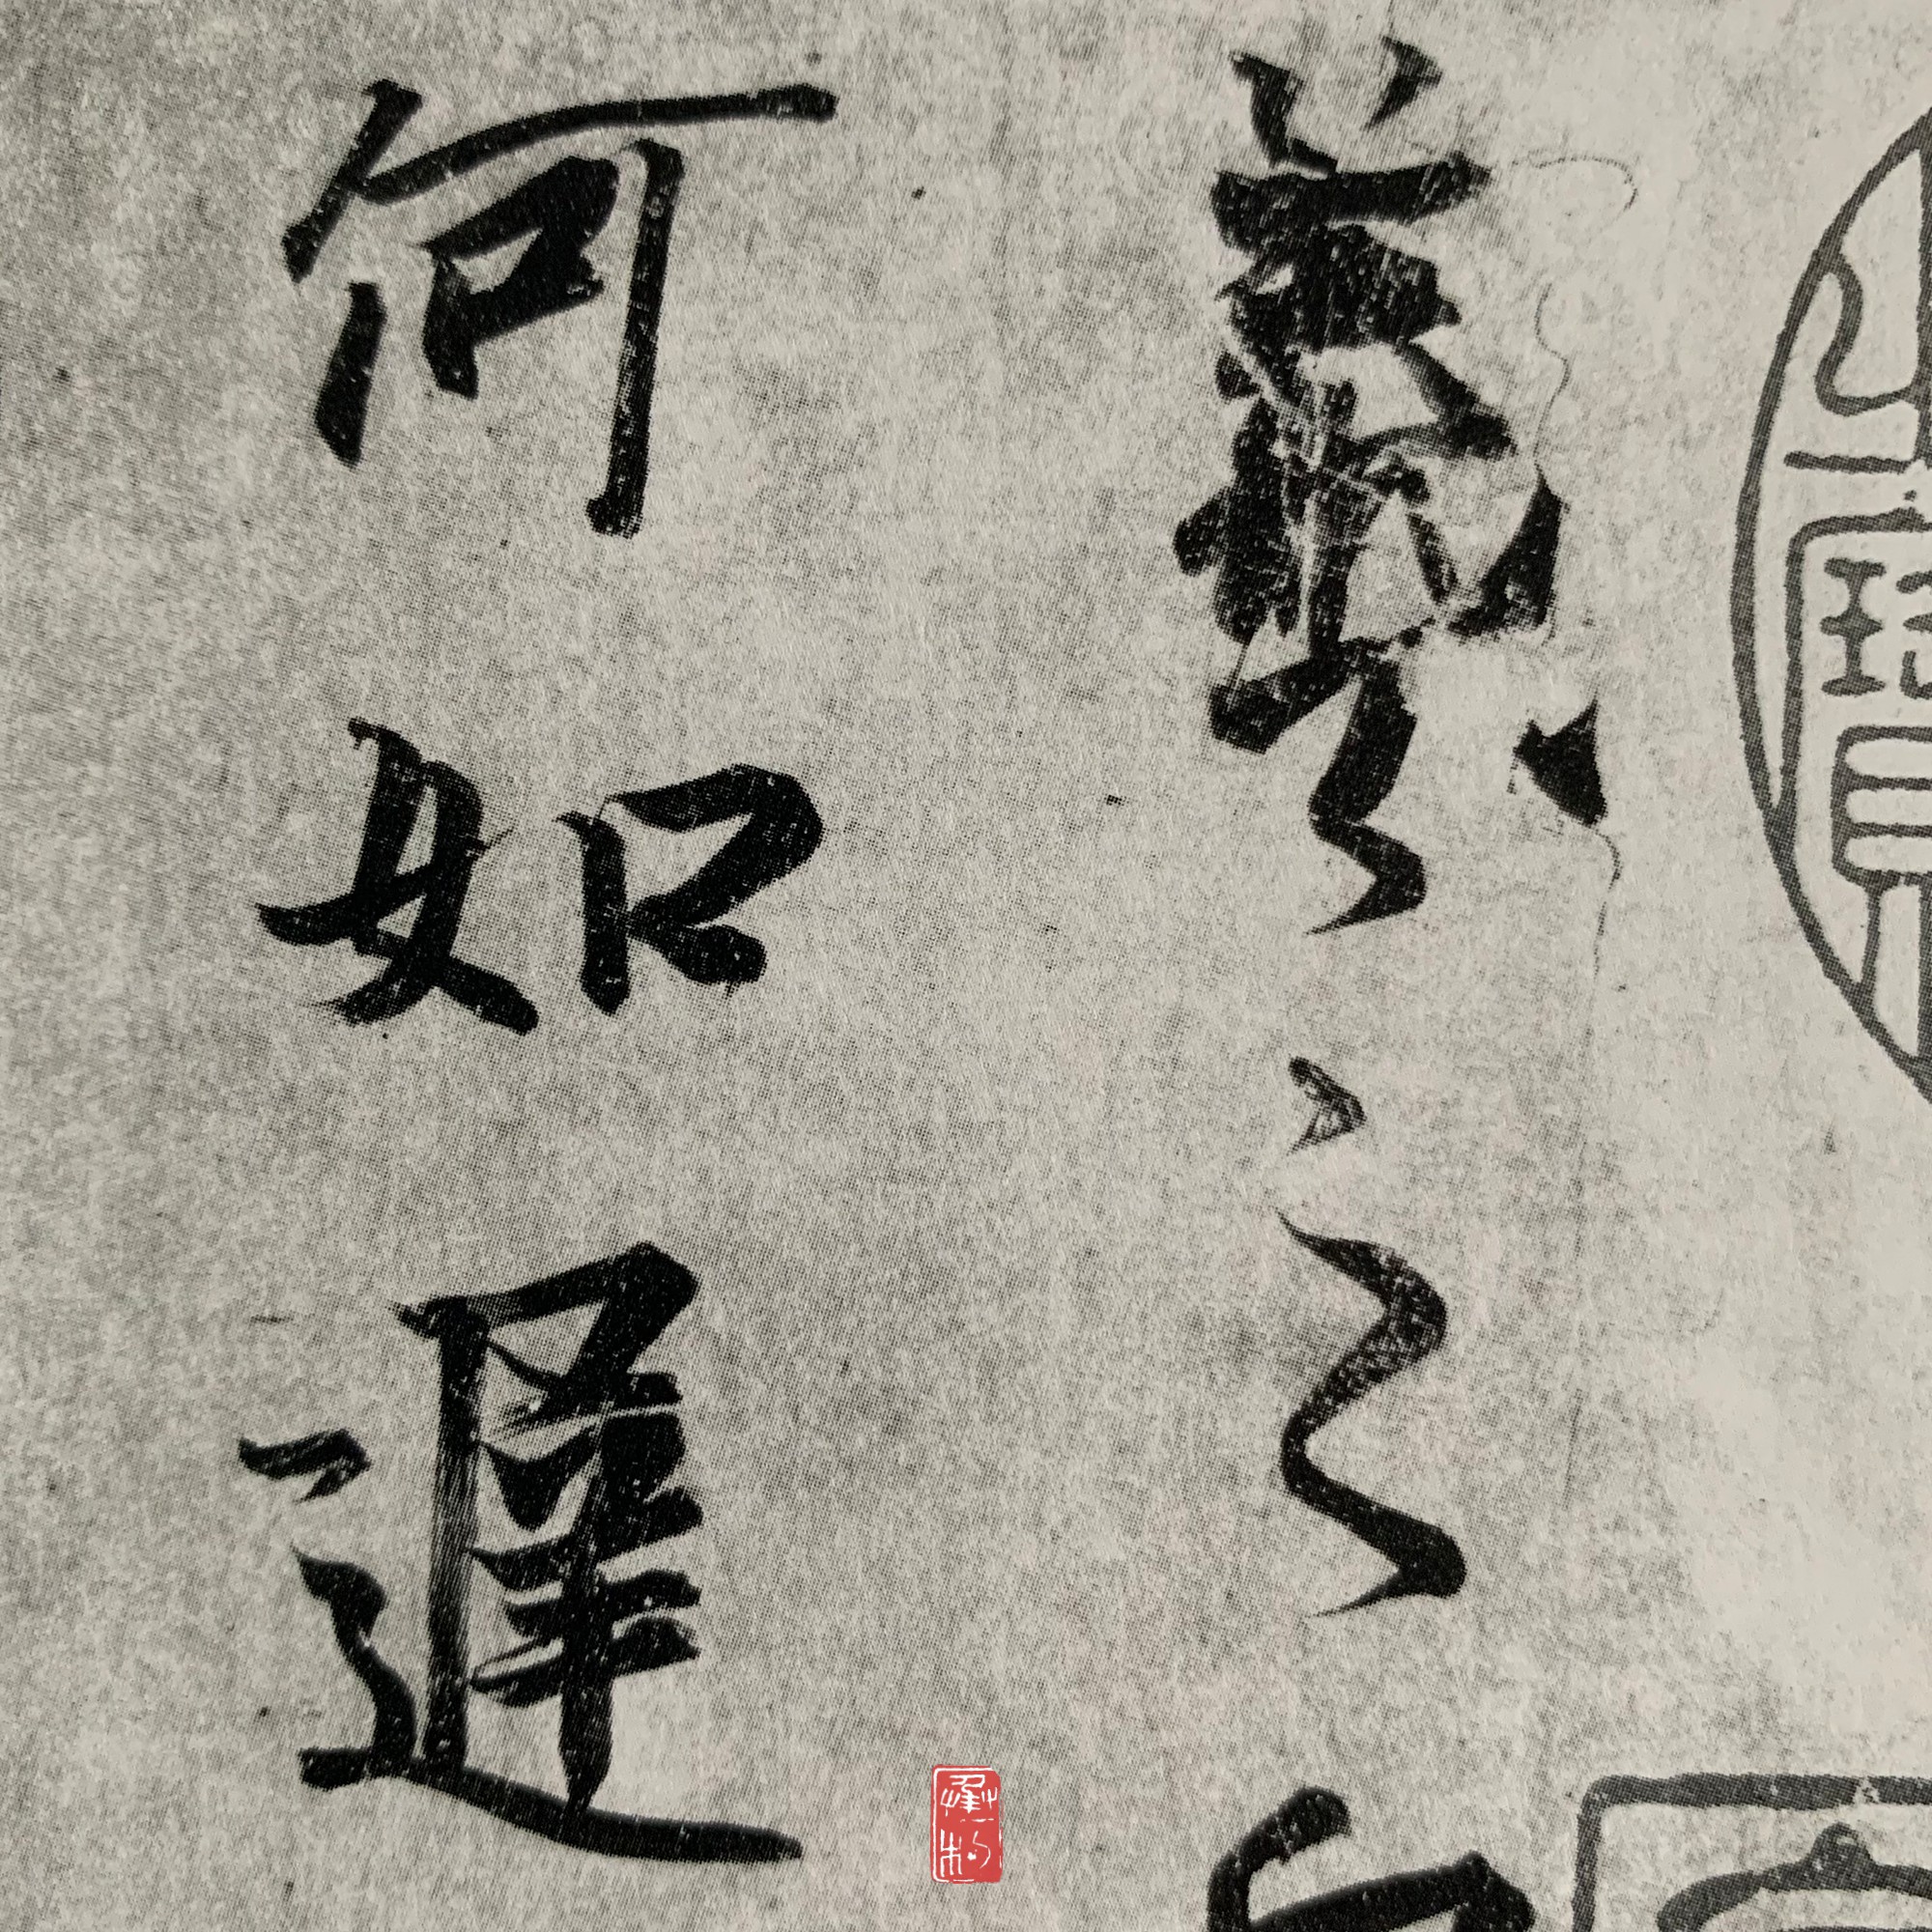 羲之
何如遲